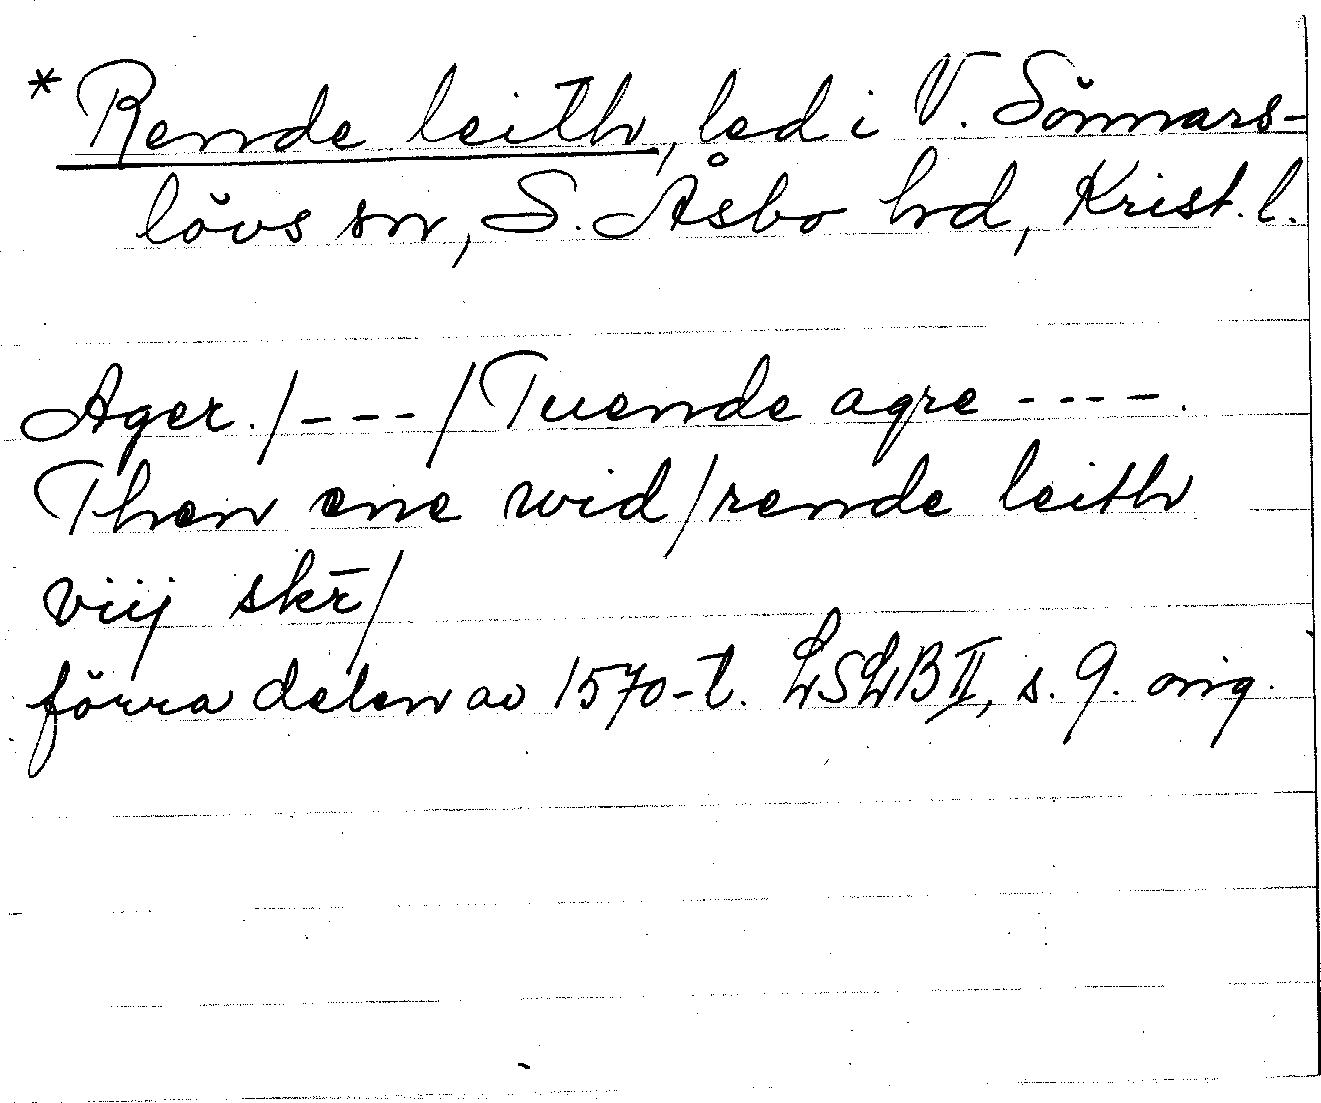 * Rende leith, led i V. Sönnars-
lövs sn, S. Åsbo hd, Krist. l.
Ager. /---/ Tuende agre ----.
Then ene wid/rende leith
viij skr̄/
förra delen av 1570-t. LSLB II, s. 9. orig.